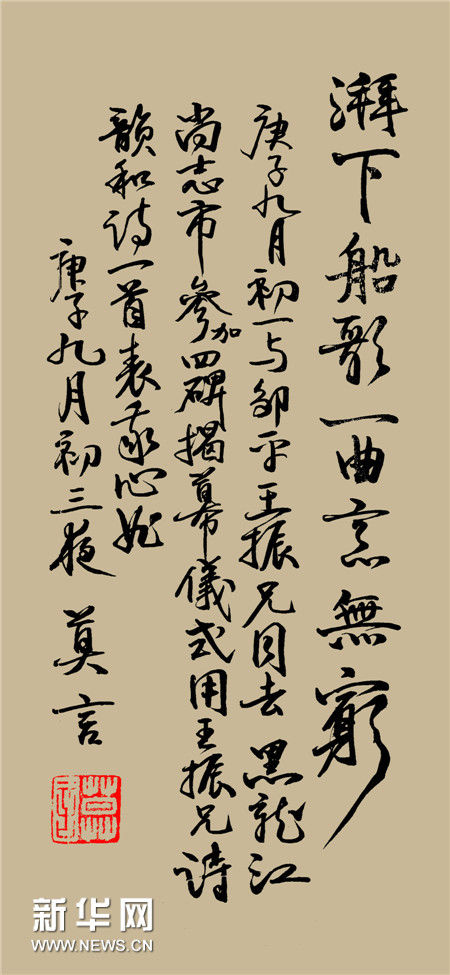 湃下船歌一曲意無窮
庚子九月初一与邹平王振兄同去黑龍江
尚志市參加四碑揭幕儀式用王振兄詩
韻和诗一首表我心
庚子九月初三夜 莫言
新华网
WWW.NEWS.CN